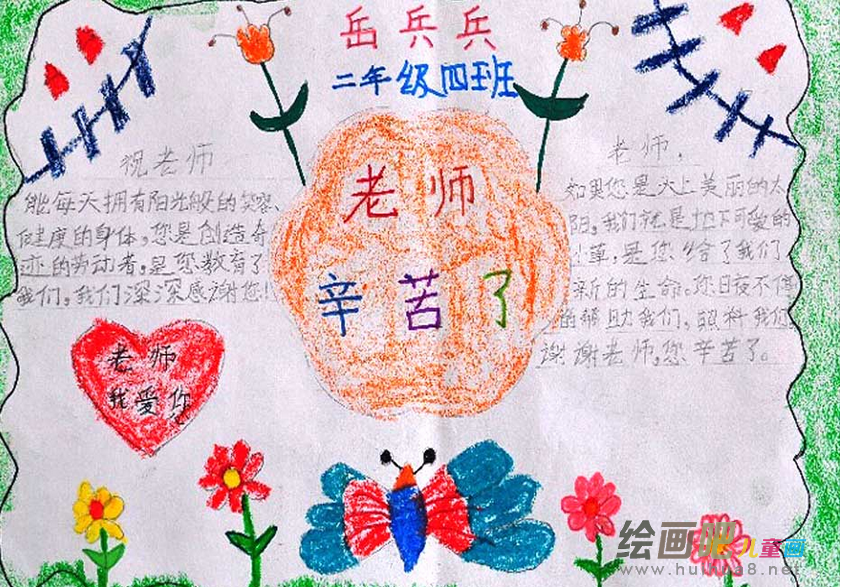 岳兵兵
二年级四班
祝老师
能每天拥有阳光般的笑容,
健康的身体,您是创造奇
迹的劳动者,是您教育了
我们,我们深深感谢您!
老师
辛苦了
老师,
如果您是天上美丽的太
阳,我们就是地下可爱的
小草,是您给了我们
新的生命。您日夜不停
的帮助我们,照料我们
谢谢老师,您辛苦了。
老师
我爱你
绘画吧儿童画
www.huihua8.net